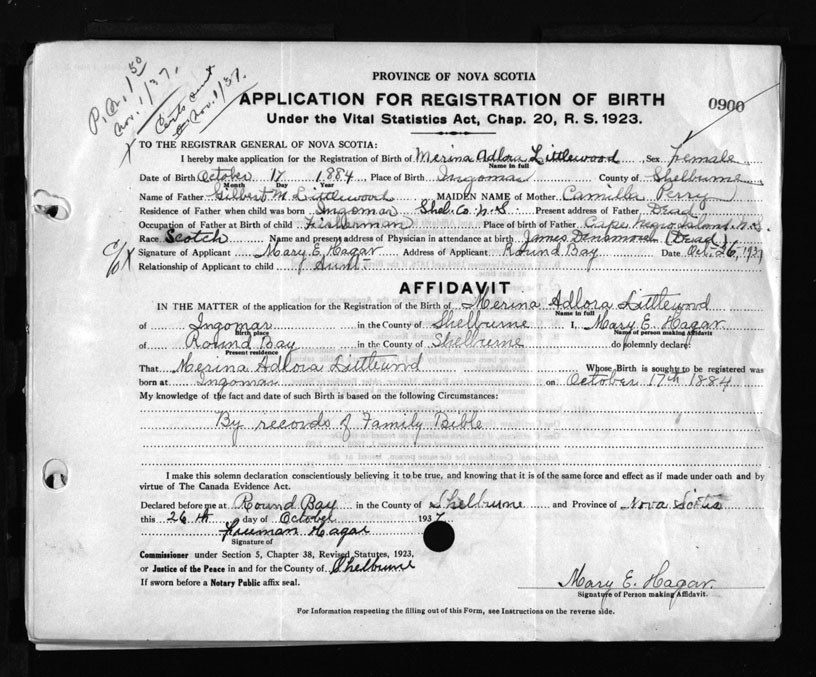 P.O. 1 50
Nov. 1/37.
Certs sent
Nov. 1/37.
PROVINCE OF NOVA SCOTIA
APPLICATION FOR REGISTRATION OF BIRTH
0900
Under the Vital Statistics Act, Chap. 20, R. S. 1923.
X TO THE REGISTRAR GENERAL OF NOVA SCOTIA:
I hereby make application for the Registration of Birth of Merina Adlora Littlewood, Sex Female
Name in full
Date of Birth October 17 1884 Place of Birth Ingomar County of Shelburne
Month Day Year
Name of Father Gilbert M. Littlewood MAIDEN NAME of Mother Camilla Perry
Residence of Father when child was born Ingomar Shel. Co. N.S. Present address of Father Dead
Occupation of Father at Birth of child Fisherman Place of birth of Father Cape Negro Island, N.S.
Race Scotch Name and present address of Physician in attendance at birth James Densmore (Dead)
Signature of Applicant Mary E. Hagar Address of Applicant Round Bay Date Oct. 26, 1937
c/o X
Relationship of Applicant to child Aunt
AFFIDAVIT
IN THE MATTER of the application for the Registration of the Birth of Merina Adlora Littlewood
Name in full
of Ingomar in the County of Shelburne I, Mary E. Hagar
Birth place Name of person making Affidavit
of Round Bay in the County of Shelburne do solemnly declare:
Present residence
That Merina Adlora Littlewood Whose Birth is sought to be registered was
born at Ingomar on October 17th 1884
My knowledge of the fact and date of such Birth is based on the following Circumstances:
By records of Family Bible
I make this solemn declaration conscientiously believing it to be true, and knowing that it is of the same force and effect as if made under oath and by
virtue of The Canada Evidence Act.
Declared before me at Round Bay in the County of Shelburne and Province of Nova Scotia
this 26th day of October 1937
Freeman Hagar
Signature of
Commissioner under Section 5, Chapter 38, Revised Statutes, 1923,
or Justice of the Peace in and for the County of Shelburne
If sworn before a Notary Public affix seal.
Mary E. Hagar.
Signature of Person making Affidavit.
For Information respecting the filling out of this Form, see Instructions on the reverse side.